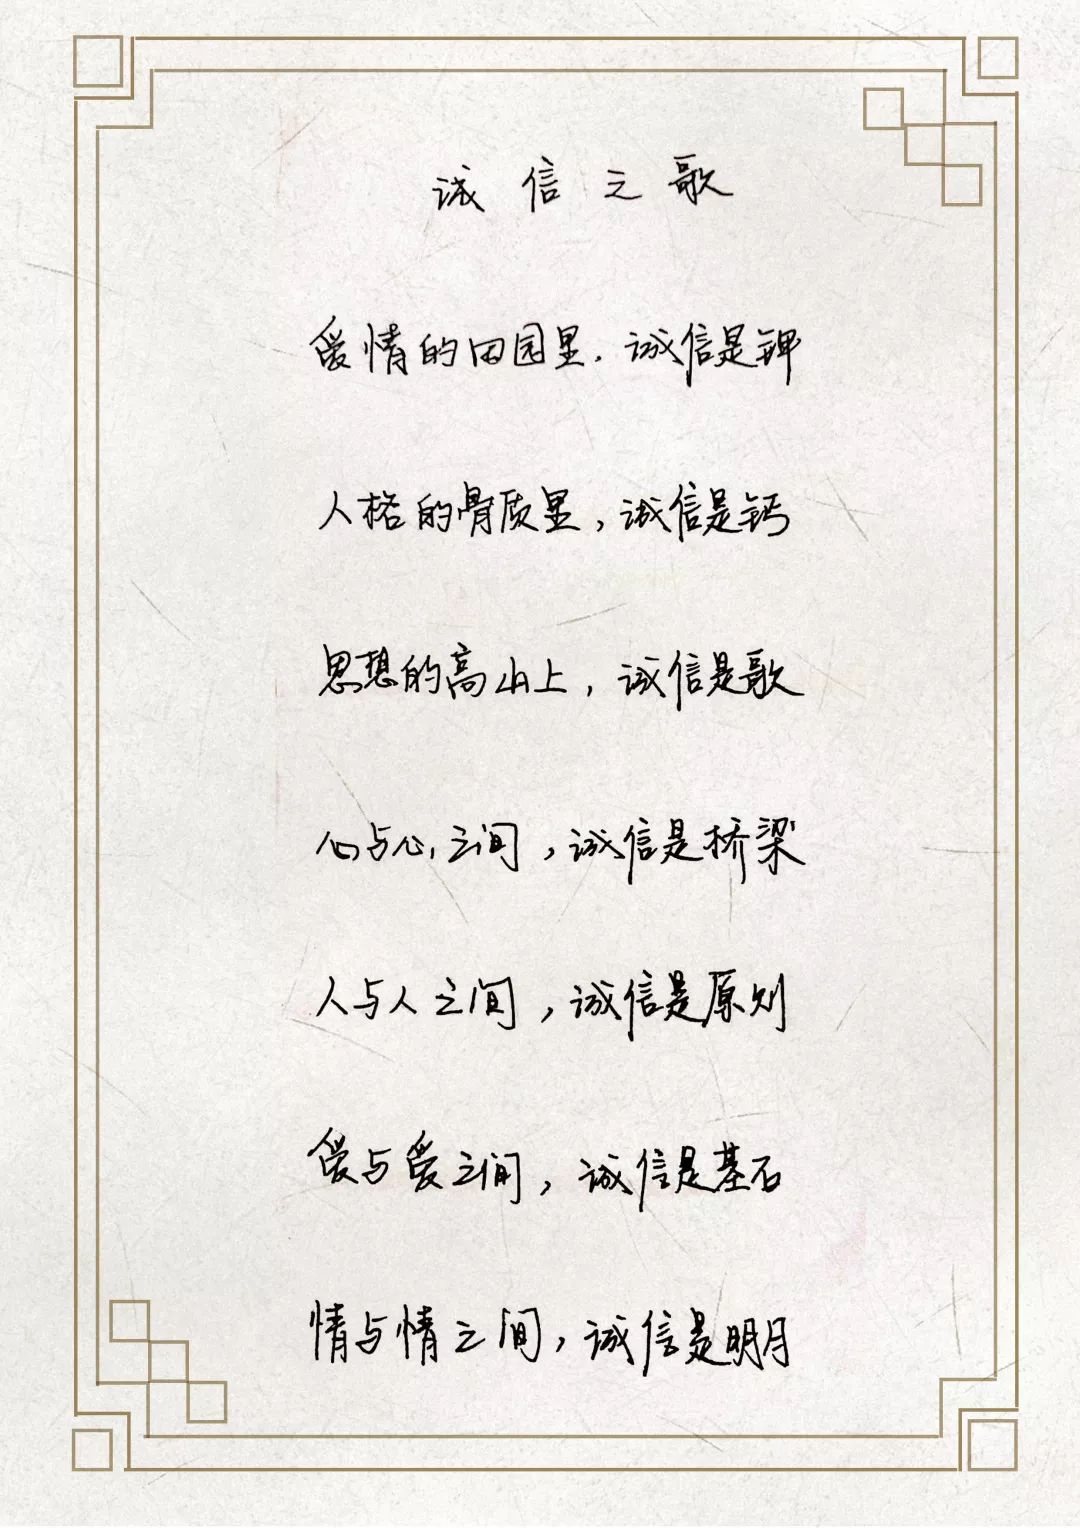 诚信之歌
爱情的田园里，诚信是钾
人格的骨质里，诚信是钙
思想的高山上，诚信是歌
心与心之间，诚信是桥梁
人与人之间，诚信是原则
爱与爱之间，诚信是基石
情与情之间，诚信是明月